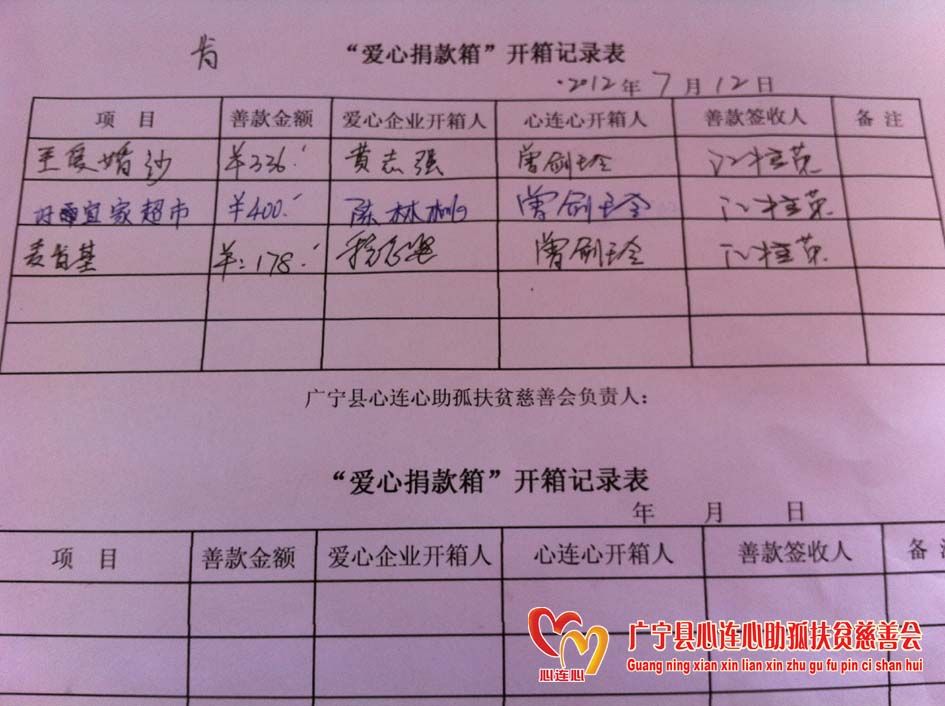 “爱心捐款箱”开箱记录表
2012年7月12日
项 目 善款金额 爱心企业开箱人 心连心开箱人 善款签收人 备 注
至爱婚沙 ¥336. 黄志强 曾剑玲 江桂英
宜家超市 ¥400. 陈林 曾剑玲 江桂英
麦肯基 ¥:178. 曾剑玲 江桂英
广宁县心连心助孤扶贫慈善会负责人：
“爱心捐款箱”开箱记录表
年 月 日
项 目 善款金额 爱心企业开箱人 心连心开箱人 善款签收人 备
心连心
广宁县心连心助孤扶贫慈善会
Guang ning xian xin lian xin zhu gu fu pin ci shan hui